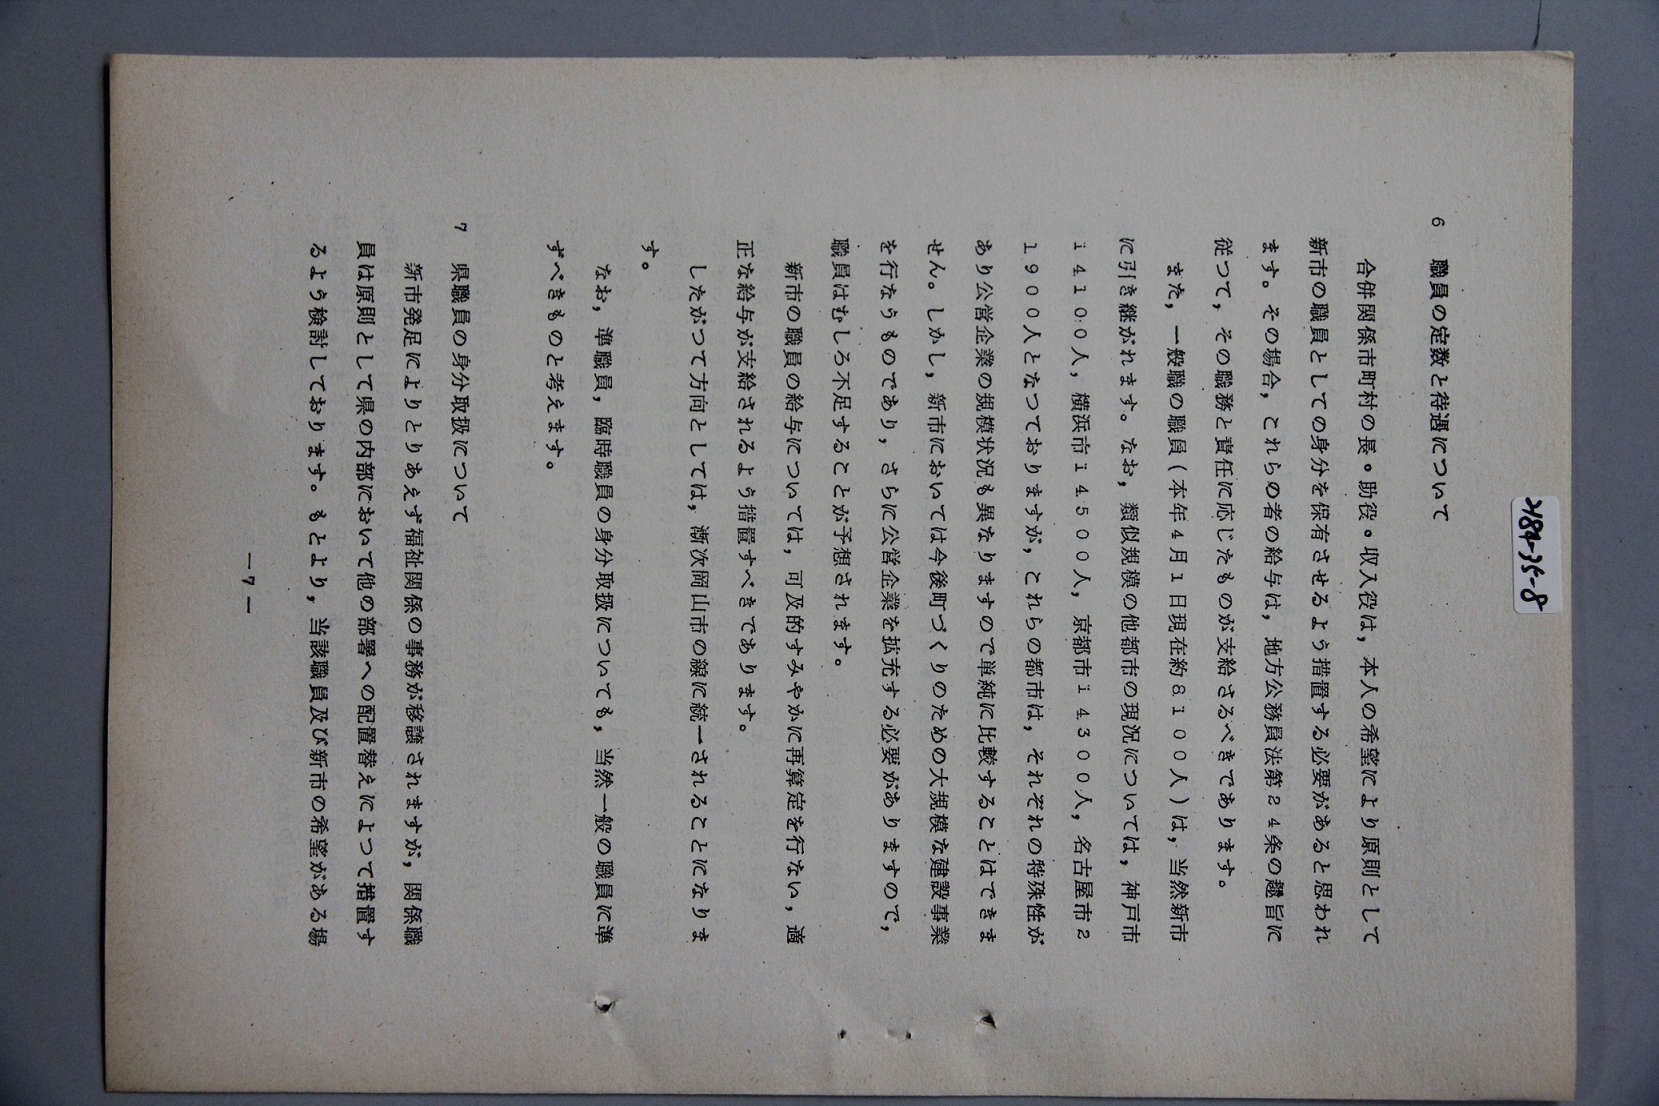 2184-35-8
6　職員の定数と待遇について
合併関係市町村の長。助役。収入役は，本人の希望により原則として
新市の職員としての身分を保有させるよう措置する必要があると思われ
ます。その場合，これらの者の給与は，地方公務員法第24条の趣旨に
従つて，その職務と責任に応じたものが支給さるべきであります。
また，一般職の職員(本年4月1日現在約8100人)は，当然新市
に引き継がれます。なお，類似規模の他都市の現況については，神戸市
14100人，横浜市14500人，京都市14300人，名古屋市2
1900人となつておりますが，これらの都市は，それぞれの特殊性が
あり公営企業の規模状況も異なりますので単純に比較することはできま
せん。しかし，新市においては今後町づくりのための大規模な建設事業
を行なうものであり，さらに公営企業を拡充する必要がありますので，
職員はむしろ不足することが予想されます。
新市の職員の給与については，可及的すみやかに再算定を行ない，適
正な給与が支給されるよう措置すべきであります。
したがつて方向としては，漸次岡山市の線に統一されることになりま
す。
なお，準職員，臨時職員の身分取扱についても，当然一般の職員に準
ずべきものと考えます。
7　県職員の身分取扱について
新市発足によりとりあえず福祉関係の事務が移譲されますが，関係職
員は原則として県の内部において他の部署への配置替えによつて措置す
るよう検討しております。もとより，当該職員及び新市の希望がある場
—7—